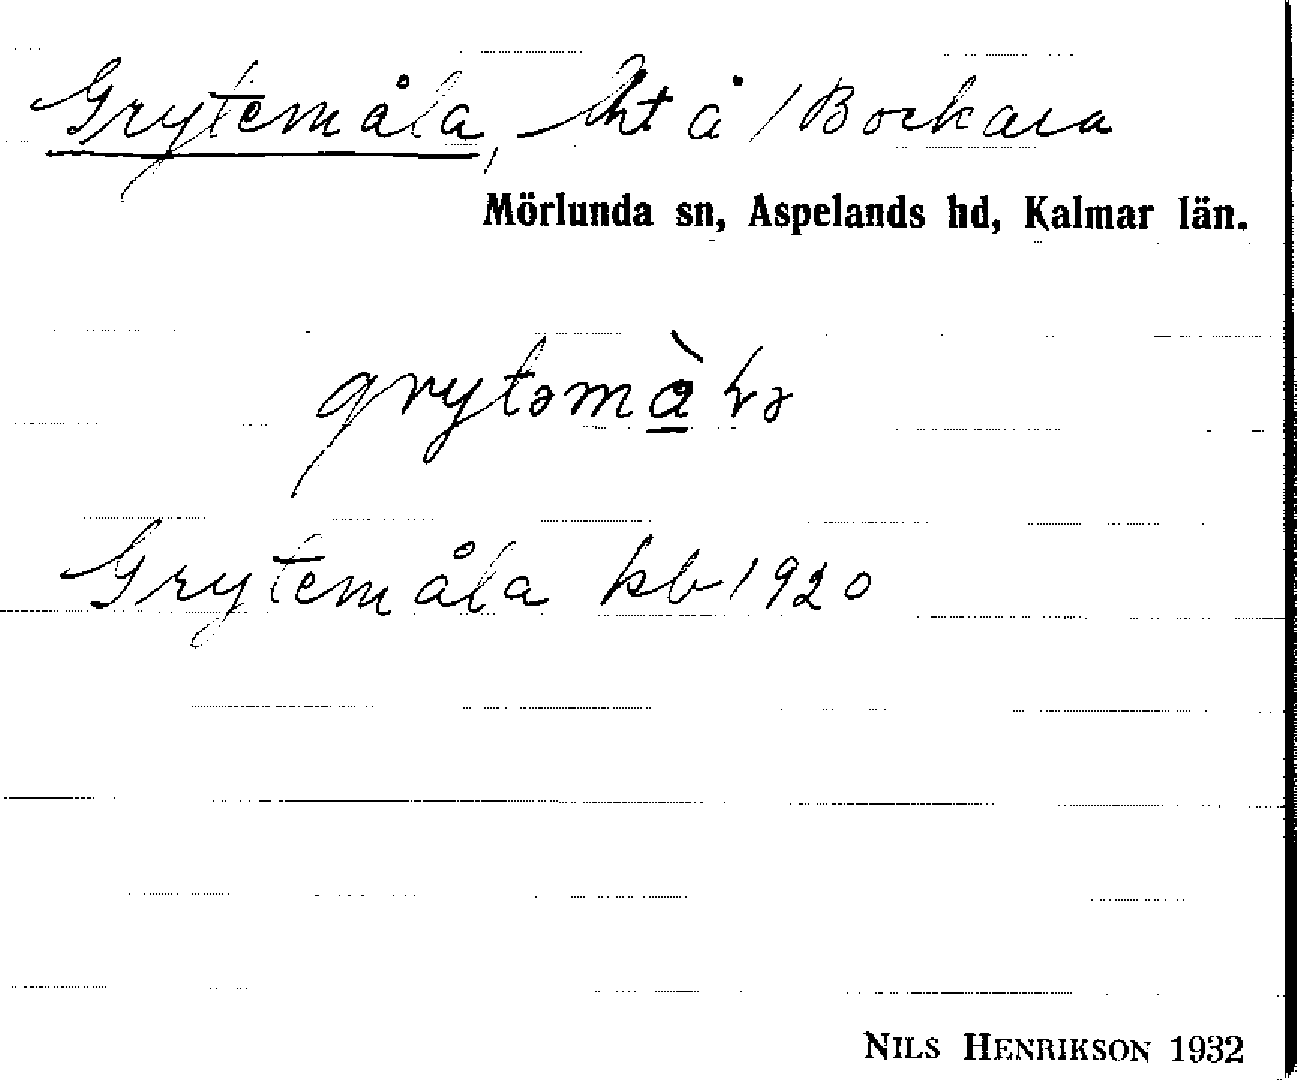 Grytemåla, lht å / Bockara
Mörlunda sn, Aspelands hd, Kalmar län.
grytəmàɽə
Grytemåla kb 1920
NILS HENRIKSON 1932